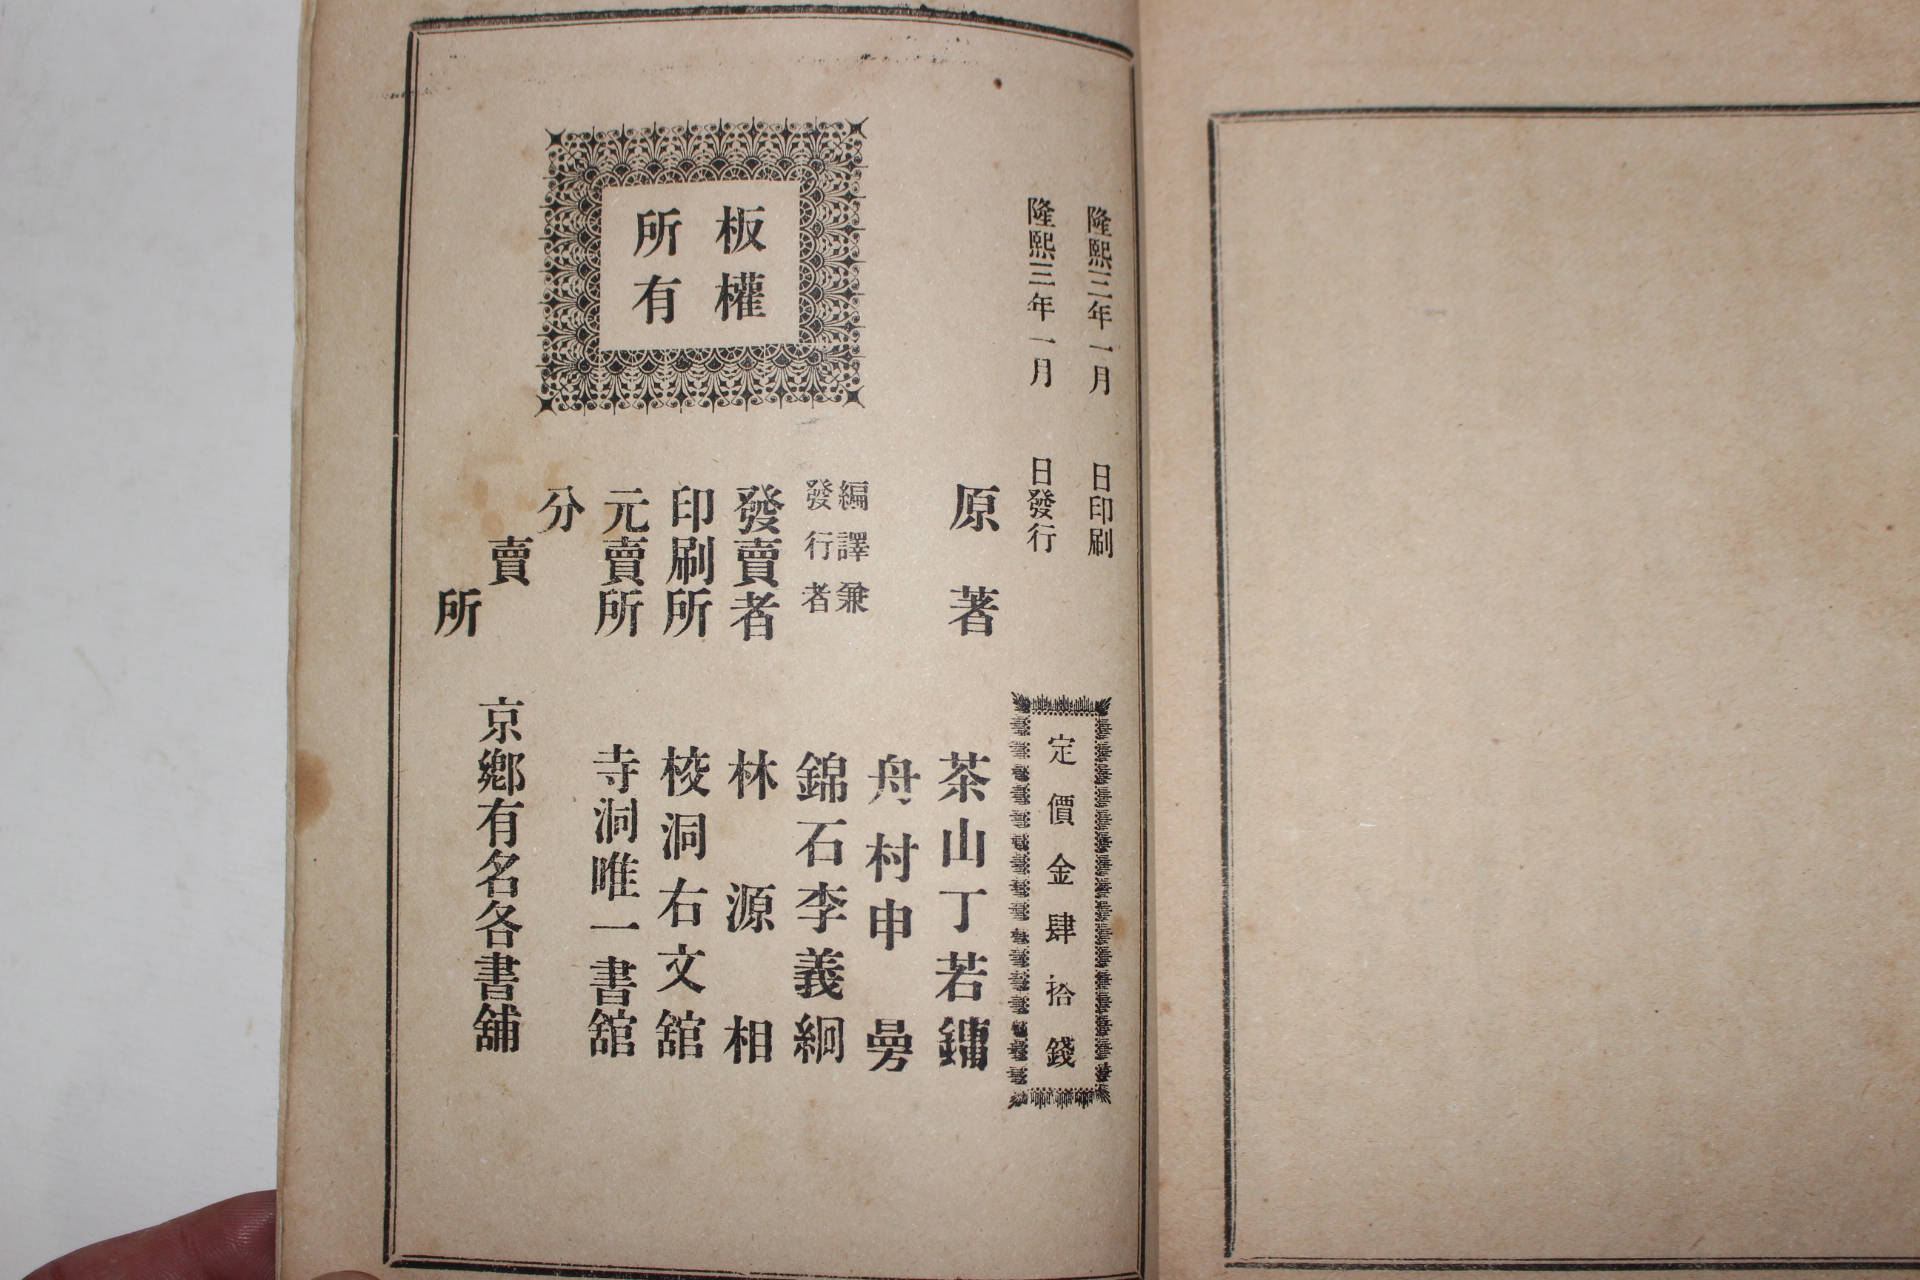 隆熙三年一月 日印刷
隆熙三年一月 日發行
定價金肆拾錢
原著 茶山丁若鏞
舟村申曼
編譯兼
發行者
錦石李義絅
發賣者 林源相
印刷所 校洞右文舘
元賣所 寺洞唯一書舘
分賣所 京鄕有名各書舖
板權
所有